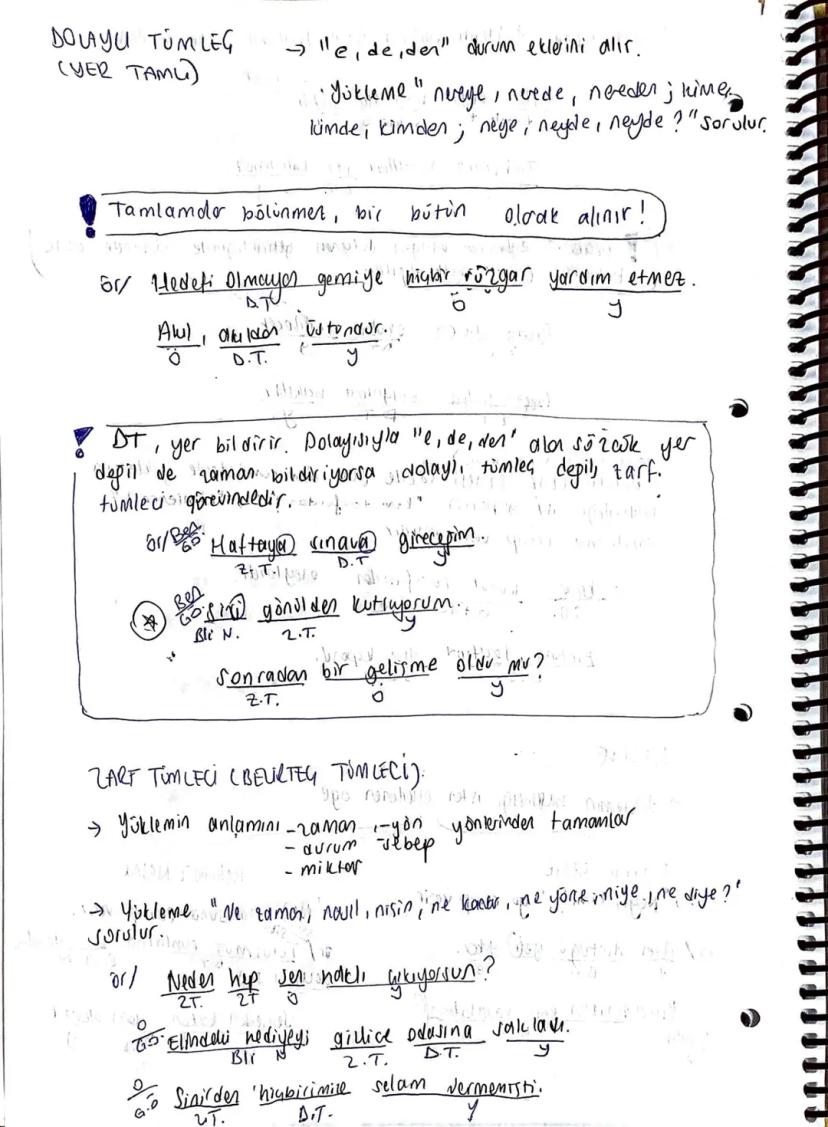 DOLAYLI TÜMLEÇ → "e, de, den" durum eklerini alır.
(YER TAML)
· Yükleme "nereye, nerede, nereden ; kime,
kimde, kimden ; neye, neyde, neyde ?" sorulur.
! Tamlamalar bölünmez, bir bütün olarak alınır !
ör/ Hedefi olmayan gemiye hiçbir rüzgar yardım etmez.
D.T Ö Y
Akıl, akıldan üstündür.
Ö D.T. Y
! DT, yer bildirir. Dolayısıyla "e, de, den" alan sözcük yer
değil de zaman bildiriyorsa dolaylı tümleç değil, zarf
tümleci görevindedir.
ör/ Ben Haftaya sınava gireceğim.
GÖ Z.T. D.T Y
Ben sizi gönülden kutluyorum.
GÖ Bli N. Z.T. Y
Sonradan bir gelişme oldu mu?
Z.T. Ö Y
ZARF TÜMLECİ (BELİRTEÇ TÜMLECİ):
→ Yüklemin anlamını -zaman, -yön yönlerinden tamamlar
- durum -sebep
- miktar
→ Yükleme "Ne zaman, nasıl, niçin, ne kadar, ne yöne, niye, ne diye ?"
sorulur.
ör/ Neden hep sen haklı çıkıyorsun?
ZT. ZT Ö Y
O Elindeki hediyeyi gizlice odasına sakladı.
GÖ Bli N Z.T. D.T. Y
O Sinirden hiçbirimize selam vermemişti.
G.Ö Z.T. D.T. Y